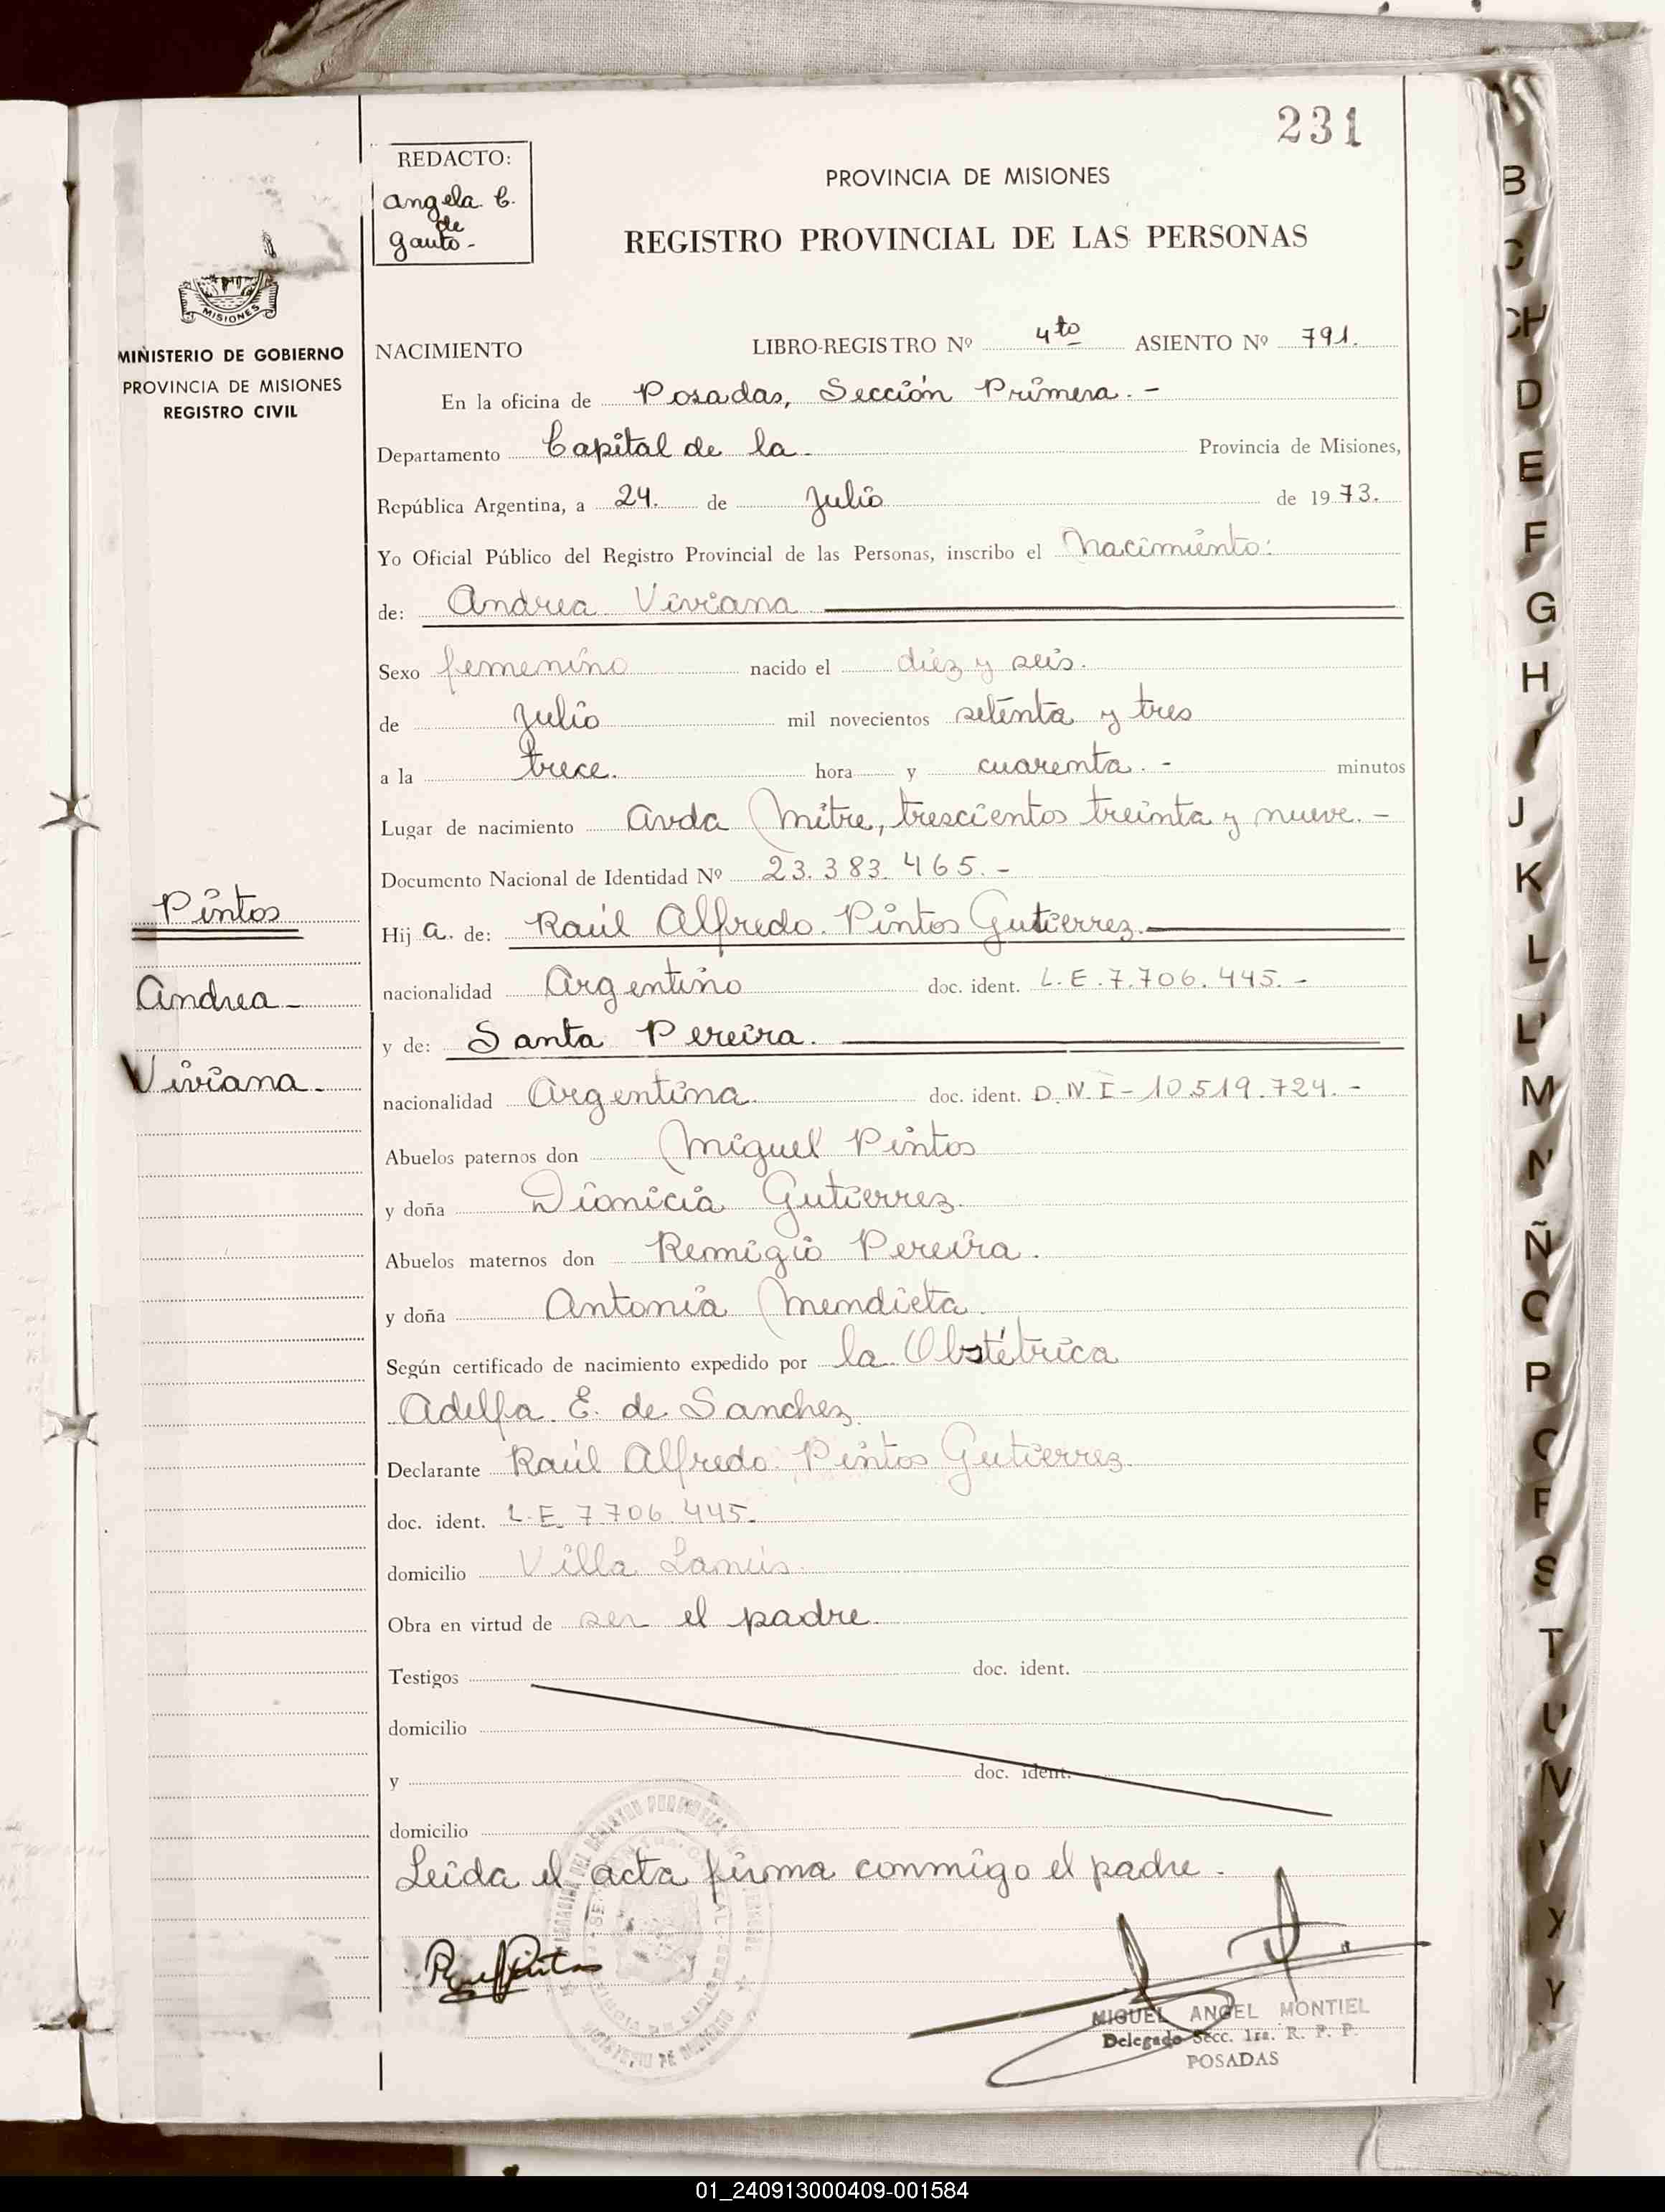 231
REDACTO:
Angela C.
de
Gauto-
PROVINCIA DE MISIONES
REGISTRO PROVINCIAL DE LAS PERSONAS
MISIONES
MINISTERIO DE GOBIERNO
PROVINCIA DE MISIONES
REGISTRO CIVIL
NACIMIENTO LIBRO-REGISTRO Nº 4to ASIENTO Nº 791.
En la oficina de Posadas, Sección Primera.-
Departamento Capital de la Provincia de Misiones,
República Argentina, a 24. de Julio de 1973.
Yo Oficial Público del Registro Provincial de las Personas, inscribo el Nacimiento:
de: Andrea Viviana
Sexo femenino nacido el diez y seis.
de Julio mil novecientos setenta y tres
a la trece. hora y cuarenta.- minutos
Lugar de nacimiento Avda Mitre, trescientos treinta y nueve.-
Documento Nacional de Identidad Nº 23.383.465.-
Pintos
Andrea-
Viviana-
Hija. de: Raúl Alfredo Pintos Gutierrez.
nacionalidad Argentino doc. ident. L.E.7.706.445.-
y de: Santa Pereira.
nacionalidad Argentina doc. ident. D.N.I-10.519.724.-
Abuelos paternos don Miguel Pintos
y doña Dionicia Gutierrez.
Abuelos maternos don Remigio Pereira.
y doña Antonia Mendieta.
Según certificado de nacimiento expedido por la Obstétrica
Adelfa E. de Sanchez.
Declarante Raúl Alfredo Pintos Gutierrez.
doc. ident. L.E. 7.706.445.
domicilio Villa Lanús.
Obra en virtud de ser el padre.
Testigos doc. ident.
domicilio
y doc. ident.
domicilio
Leida el acta firma conmigo el padre.
MIGUEL ANGEL MONTIEL
Delegado Secc. 1ra. R. P. P.
POSADAS
B
C
CH
D
E
F
G
H
I
J
K
L
LL
M
N
Ñ
O
P
Q
R
S
T
U
V
X
Y
01_240913000409-001584